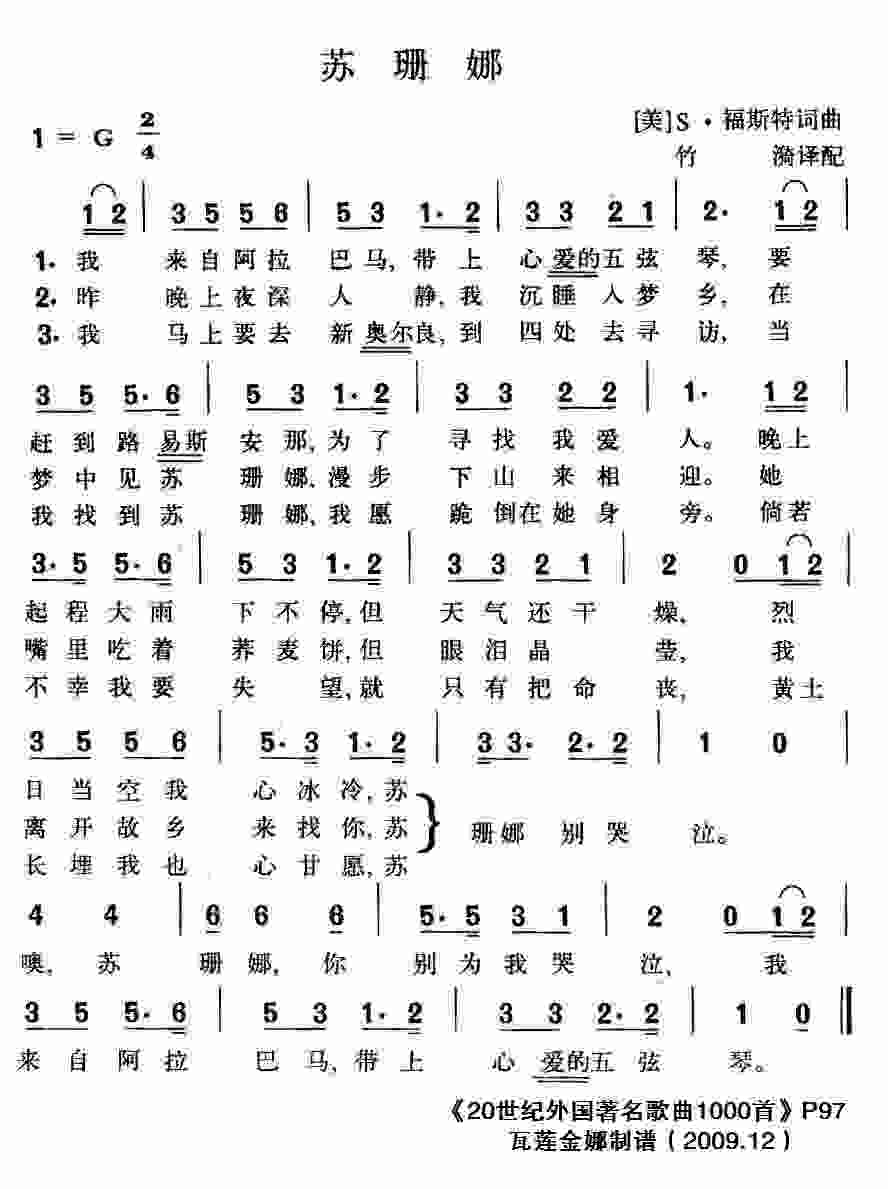 苏 珊 娜
1 = G 2/4
[美]S·福斯特词曲
竹 漪译配
1 2 | 3 5 5 6 | 5 3 1· 2 | 3 3 2 1 | 2· 1 2 |
1. 我 来自阿拉 巴马,带上 心爱的五弦 琴,要
2. 昨 晚上夜深 人 静,我 沉睡入梦 乡,在
3. 我 马上要去 新奥尔良,到 四处去寻 访,当
3 5 5· 6 | 5 3 1· 2 | 3 3 2 2 | 1· 1 2 |
赶到路易斯 安那,为了 寻找我爱 人。晚上
梦中见苏 珊娜,漫步 下山来相 迎。她
我找到苏 珊娜,我愿 跪倒在她身 旁。倘若
3· 5 5· 6 | 5 3 1· 2 | 3 3 2 1 | 2 0 1 2 |
起程大雨 下不停,但 天气还干 燥,烈
嘴里吃着 荞麦饼,但 眼泪晶 莹,我
不幸我要 失 望,就 只有把命 丧,黄土
3 5 5 6 | 5· 3 1· 2 | 3 3· 2· 2 | 1 0 |
日当空我 心冰冷,苏
离开故乡 来找你,苏 } 珊娜 别哭 泣。
长埋我也 心甘愿,苏
4 4 | 6 6 6 | 5· 5 3 1 | 2 0 1 2 |
噢,苏 珊娜,你 别为我哭 泣,我
3 5 5· 6 | 5 3 1· 2 | 3 3 2· 2 | 1 0 ‖
来自阿拉 巴马,带上 心爱的五弦 琴。
《20世纪外国著名歌曲1000首》P97
瓦莲金娜制谱(2009.12)